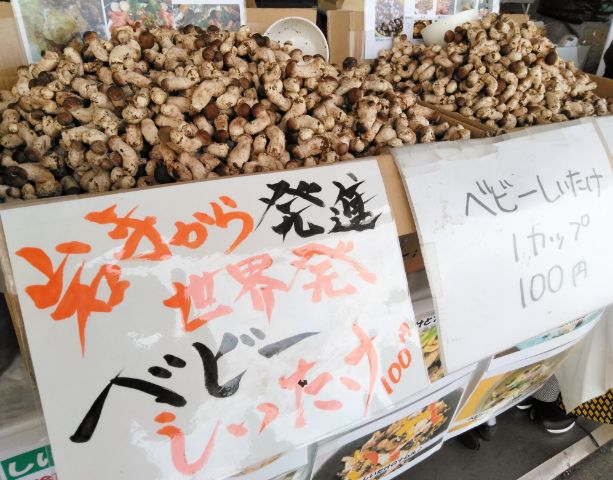 岩手から発進
世界発
ベビー
しいたけ 100円
ベビーしいたけ
1カップ
100円
しい